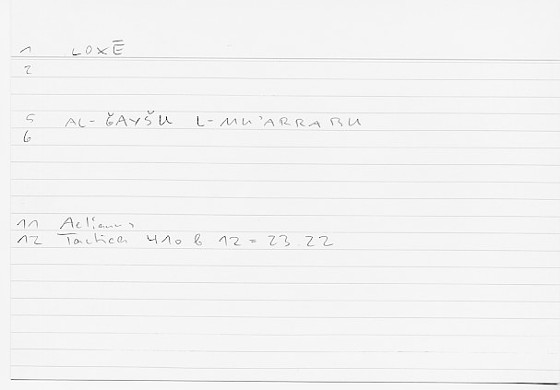 1 LOXĒ
2
5 AL-ǦAYŠU L-MU'ARRABU
6
11 Aelianus
12 Tactica 410 b 12 = 23 22